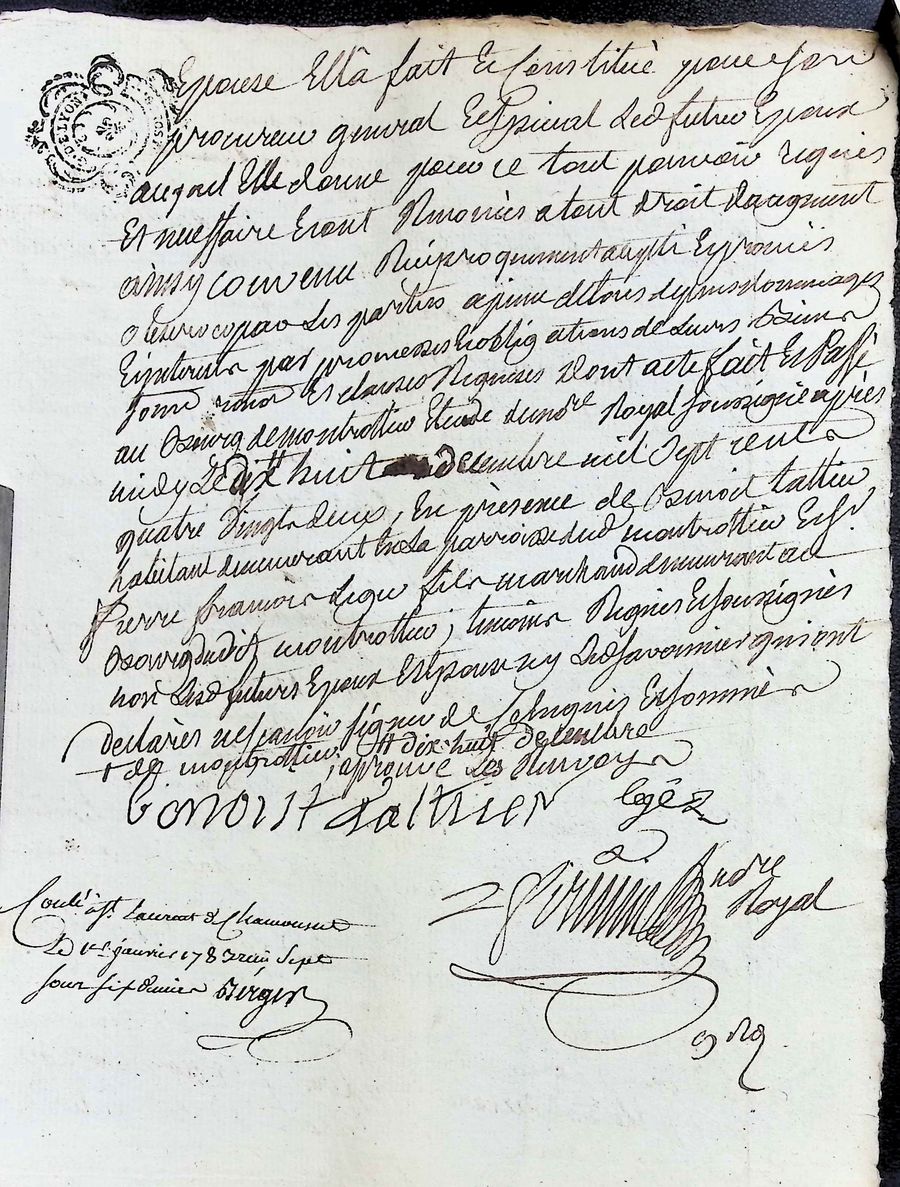 Epouse Ella fait Et Constitué pour son
procureur general Et spicial Led futur Epoux
auquel Elle donne pour ce tout pouvoir requis
Et necessaire Eront Renoncés a tout droit daugment
ainsy convenu Reciproquement Et promis
observer par Les parties a peine de tous depens dommages
Et interets par promesses Et obligations de Leurs Biens
Et clauses Requises Dont acte fait Et Passé
au Bourg de montrottier Etude du no.re Royal soussigné après
midy Le dix huit decembre mil sept cents
quatre vingt deux, En présence de Benoit Laltier
habitant demeurant En La parroisse dud montrottier Et s.r
Pierre françois fils marchand demeurant au
Bourg dudit montrottier, temoins Requis Et soussignés
non Lesd futurs Epoux Et Epouse ny Led Savonnier qui ont
declarés ne scavoir signer de Ce Enquis Et sommés
+ de montrottier, ++ dix huit decembre
, aprouvé Les Renvoys
benoist
André
Royal
Conlé a St Laurent de Chamousset
Le 1er janvier 1783 reçu sept
sous six deniers Bergés
G. DE LYON